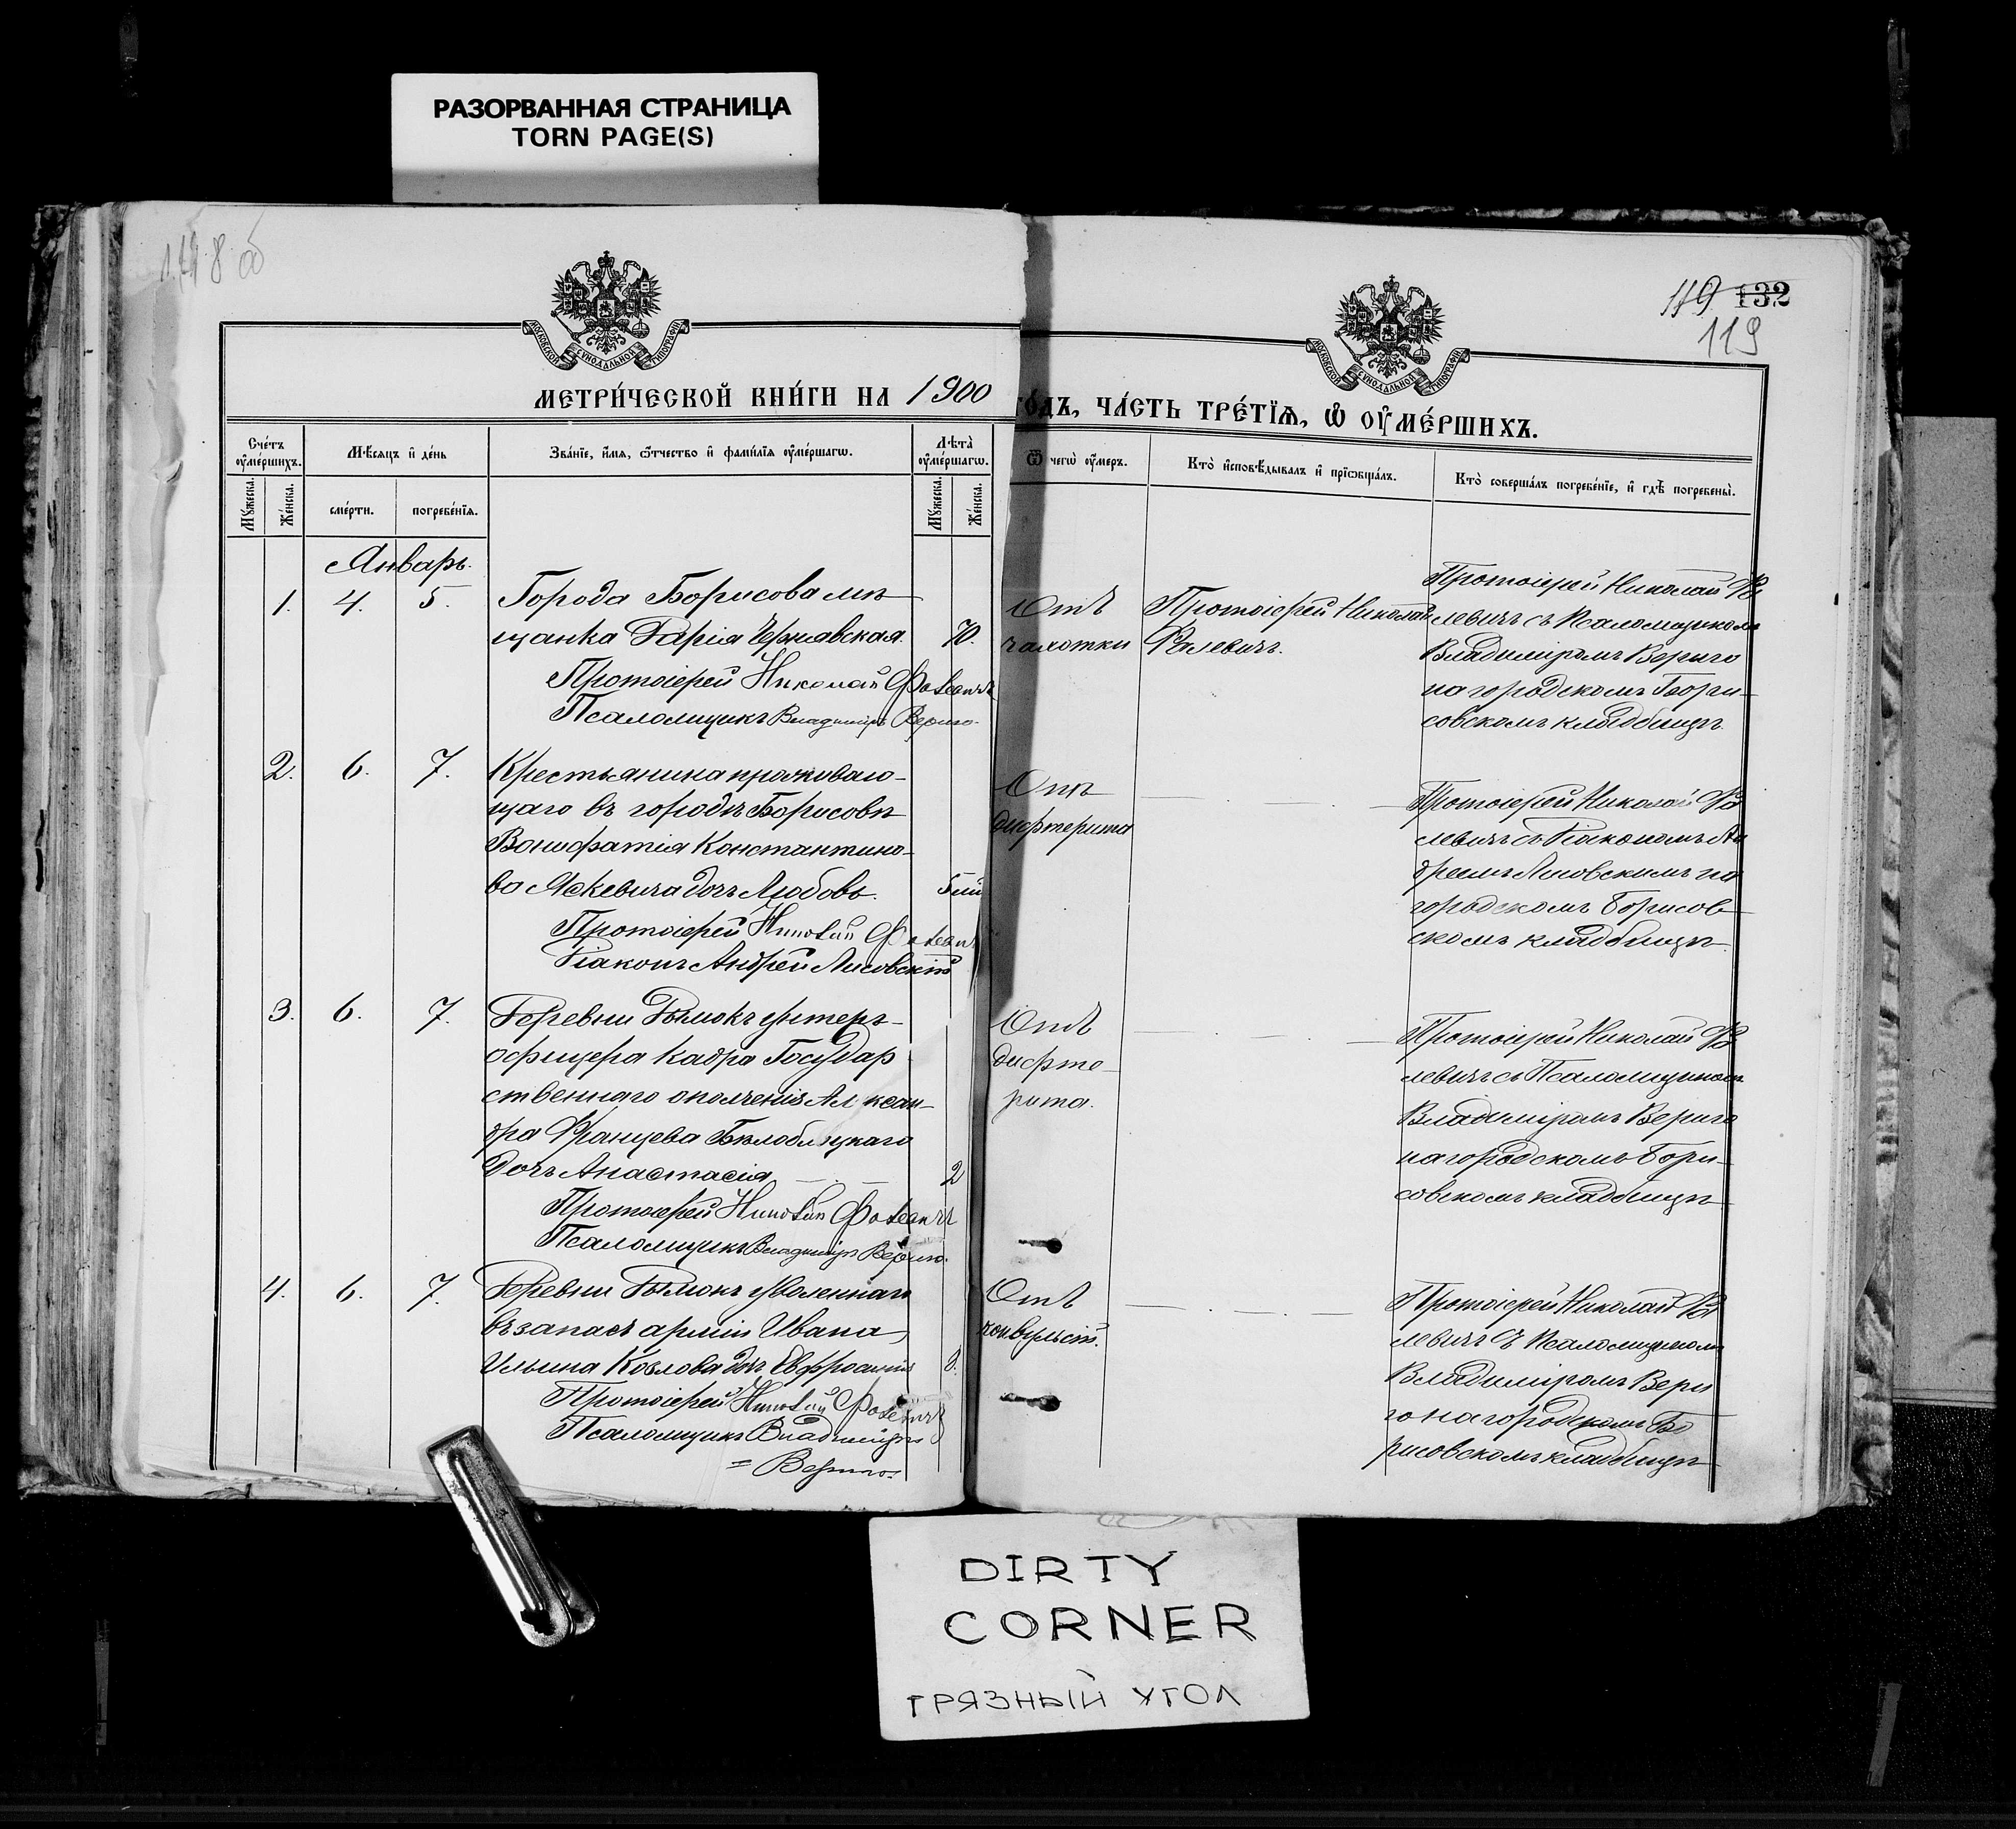 РАЗОРВАННАЯ СТРАНИЦА
TORN PAGE(S)
119
132
119
МОСКОВСКОЙ СѴНОДАЛЬНОЙ ТИПОГРАФІИ
МОСКОВСКОЙ СѴНОДАЛЬНОЙ ТИПОГРАФІИ
МЕТРИ́ЧЕСКОЙ КНИ́ГИ НА 1900
ГО́ДЪ, ЧА́СТЬ ТРЕ́ТЇѦ, Ѽ ОУ҆МЕ́РШИХЪ.
Сче́тъ оу҆ме́ршихъ.
Мѣ́сяцъ и҆ де́нь
Зва́нїе, и҆́мя, ѻ҆́тчество и҆ фами́лїя оу҆ме́ршагѡ.
Лѣта̀ оу҆ме́ршагѡ.
Ѿ чегѡ̀ оу҆́меръ.
Кто̀ и҆сповѣ́дывалъ и҆ прїѡбща́лъ.
Кто̀ соверша́лъ погребе́нїе, и҆ гдѣ̀ погребены̀.
Му́жеска.
Же́нска.
сме́рти.
погребе́нїя.
Му́жеска.
Же́нска.
Январь.
1. 4. 5.
Города Борисова мѣ-
щанка Дарія Чернявская. 70.
Протоіерей Николай Фалевичъ
Псаломщикъ Владиміръ Верига.
Отъ
чахотки
Протоіерей Николай
Фалевичъ.
Протоіерей Николай Фа
левичъ съ Псаломщикомъ
Владиміромъ Вериго
на городскомъ Бори-
совскомъ кладбищѣ.
2. 6. 7.
Крестьянина проживаю-
щаго въ городѣ Борисовѣ
Вонифатія Константино-
ва Яскевича дочь Любовь.
Протоіерей Николай Фалевичъ
Діаконъ Андрей Лисовскій
Отъ
дифтерита
Протоіерей Николай Фа
левичъ съ Діакономъ Ан
дреемъ Лисовскимъ на
городскомъ Борисов
скомъ кладбищѣ.
3. 6. 7.
Деревни Дымокъ унтеръ-
офицера Кадра Государ
ственнаго ополченія Алексан-
дра Францева Бѣлоблоцкаго
дочь Анастасія 2
Протоіерей Николай Фалевичъ
Псаломщикъ Владиміръ Верига.
Отъ
дифте-
рита.
Протоіерей Николай Фа
левичъ съ Псаломщикомъ
Владиміромъ Вериго
на городскомъ Бори-
совскомъ кладбищѣ
4. 6. 7.
Деревни Дымокъ уволеннаго
въ запасъ арміи Ивана
Ильина Козлова дочь Евфросинія
Протоіерей Николай Фалевичъ
Псаломщикъ Владиміръ
= Верига.
Отъ
конвульсій.
Протоіерей Николай Фа
левичъ съ Псаломщикомъ
Владиміромъ Вери
го на городскомъ Бо
рисовскомъ кладбищѣ
DIRTY
CORNER
ГРЯЗНЫЙ УГОЛ